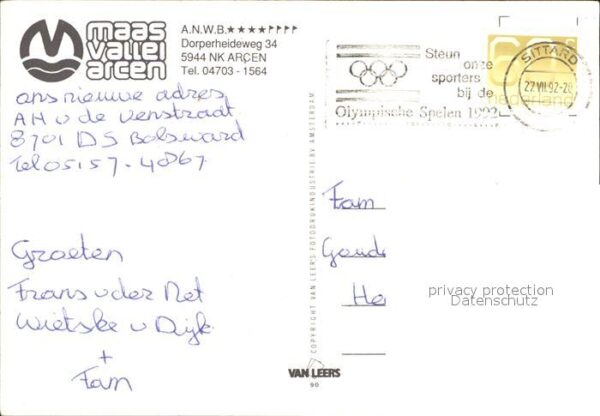 maas
vallei
arcen
A.N.W.B.★★★★
Dorperheideweg 34
5944 NK ARCEN
Tel. 04703 - 1564
ons nieuwe adres
AH v de Venstraat
8701 DS Bolsward
Tel 05157-4867
Groeten
Frans v der Met
Wietske v Dijk
+
Fam
COPYRIGHT VAN LEER'S FOTODRUKINDUSTRIE BV AMSTERDAM
VAN LEERS
90
Steun
onze
sporters
bij de
Olympische Spelen 1992
SITTARD
27.VII.92
nederland
Fam
Goude
He
privacy protection
Datenschutz